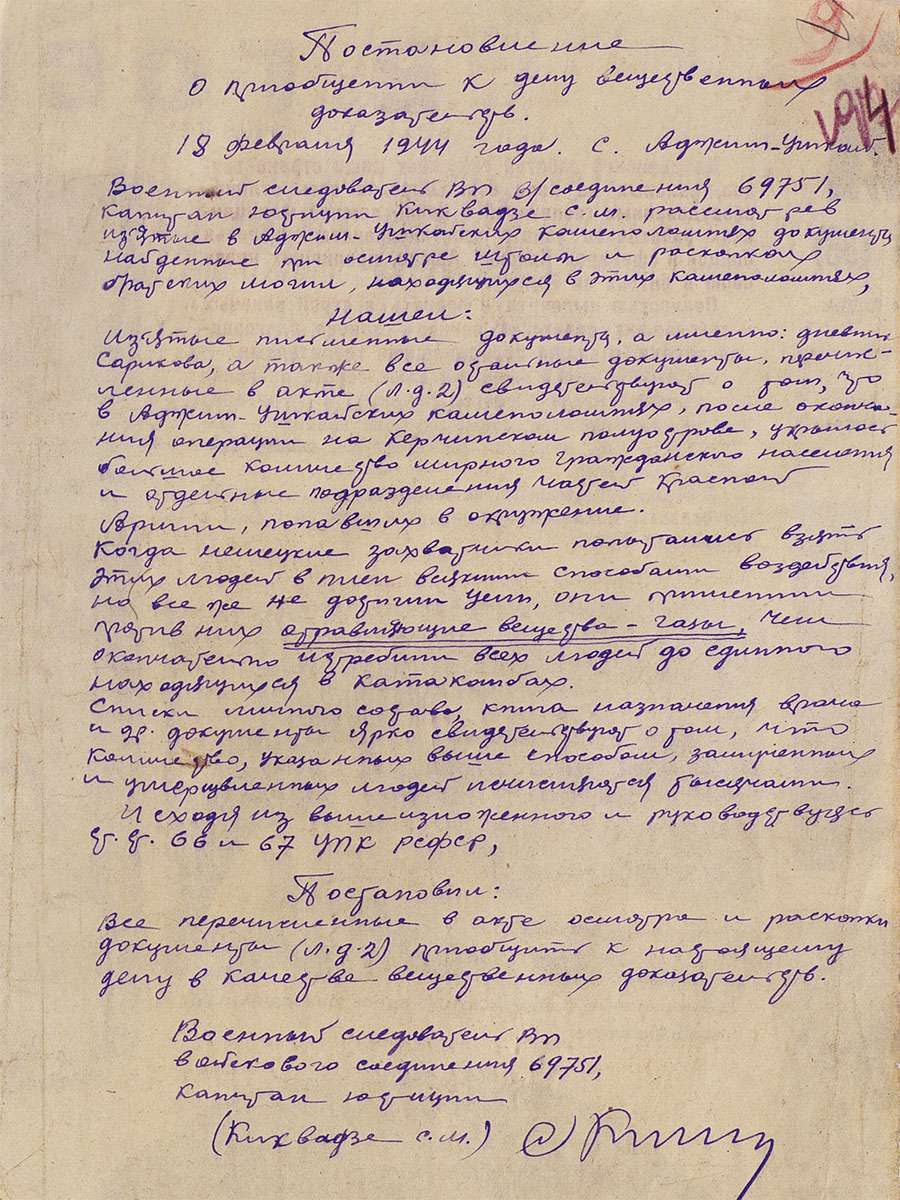 Постановление
о приобщении к делу вещественных
доказательств.
18 февраля 1944 года. с. Аджим-Ушкай.
Военный следователь ВП в/соединения 69751,
капитан юстиции Киквадзе С.М. рассмотрев
изъятые в Аджим-Ушкайских каменоломнях документы
найденные при осмотре штолен и раскопках
братских могил, находящихся в этих каменоломнях,
Нашел:
Изъятые письменные документы, а именно: дневник
Сарикова, а также все остальные документы, перечис-
ленные в акте (л.д.2) свидетельствуют о том, что
в Аджим-Ушкайских каменоломнях, после оконча-
ния операции на Керченском полуострове, укрылось
большое количество мирного гражданского населения
и отдельные подразделения частей Красной
Армии, попавших в окружение.
Когда немецкие захватчики попытались взять
этих людей в плен всякими способами воздействия,
но все же не достигли цели, они применили
против них отравляющие вещества - газы, чем
окончательно истребили всех людей до единого
находящихся в катакомбах.
Списки личного состава, книга назначения врача
и др. документы ярко свидетельствуют о том, что
количество, указанных выше способом, замученных
и умерщвленных людей исчисляются тысячами.
Исходя из вышеизложенного и руководствуясь
ст.ст. 66 и 67 УПК РСФСР,
Постановил:
Все перечисленные в акте осмотра и раскопки
документы (л.д.2) приобщить к настоящему
делу в качестве вещественных доказательств.
Военный следователь ВП
войскового соединения 69751,
капитан юстиции
(Киквадзе С.М.)